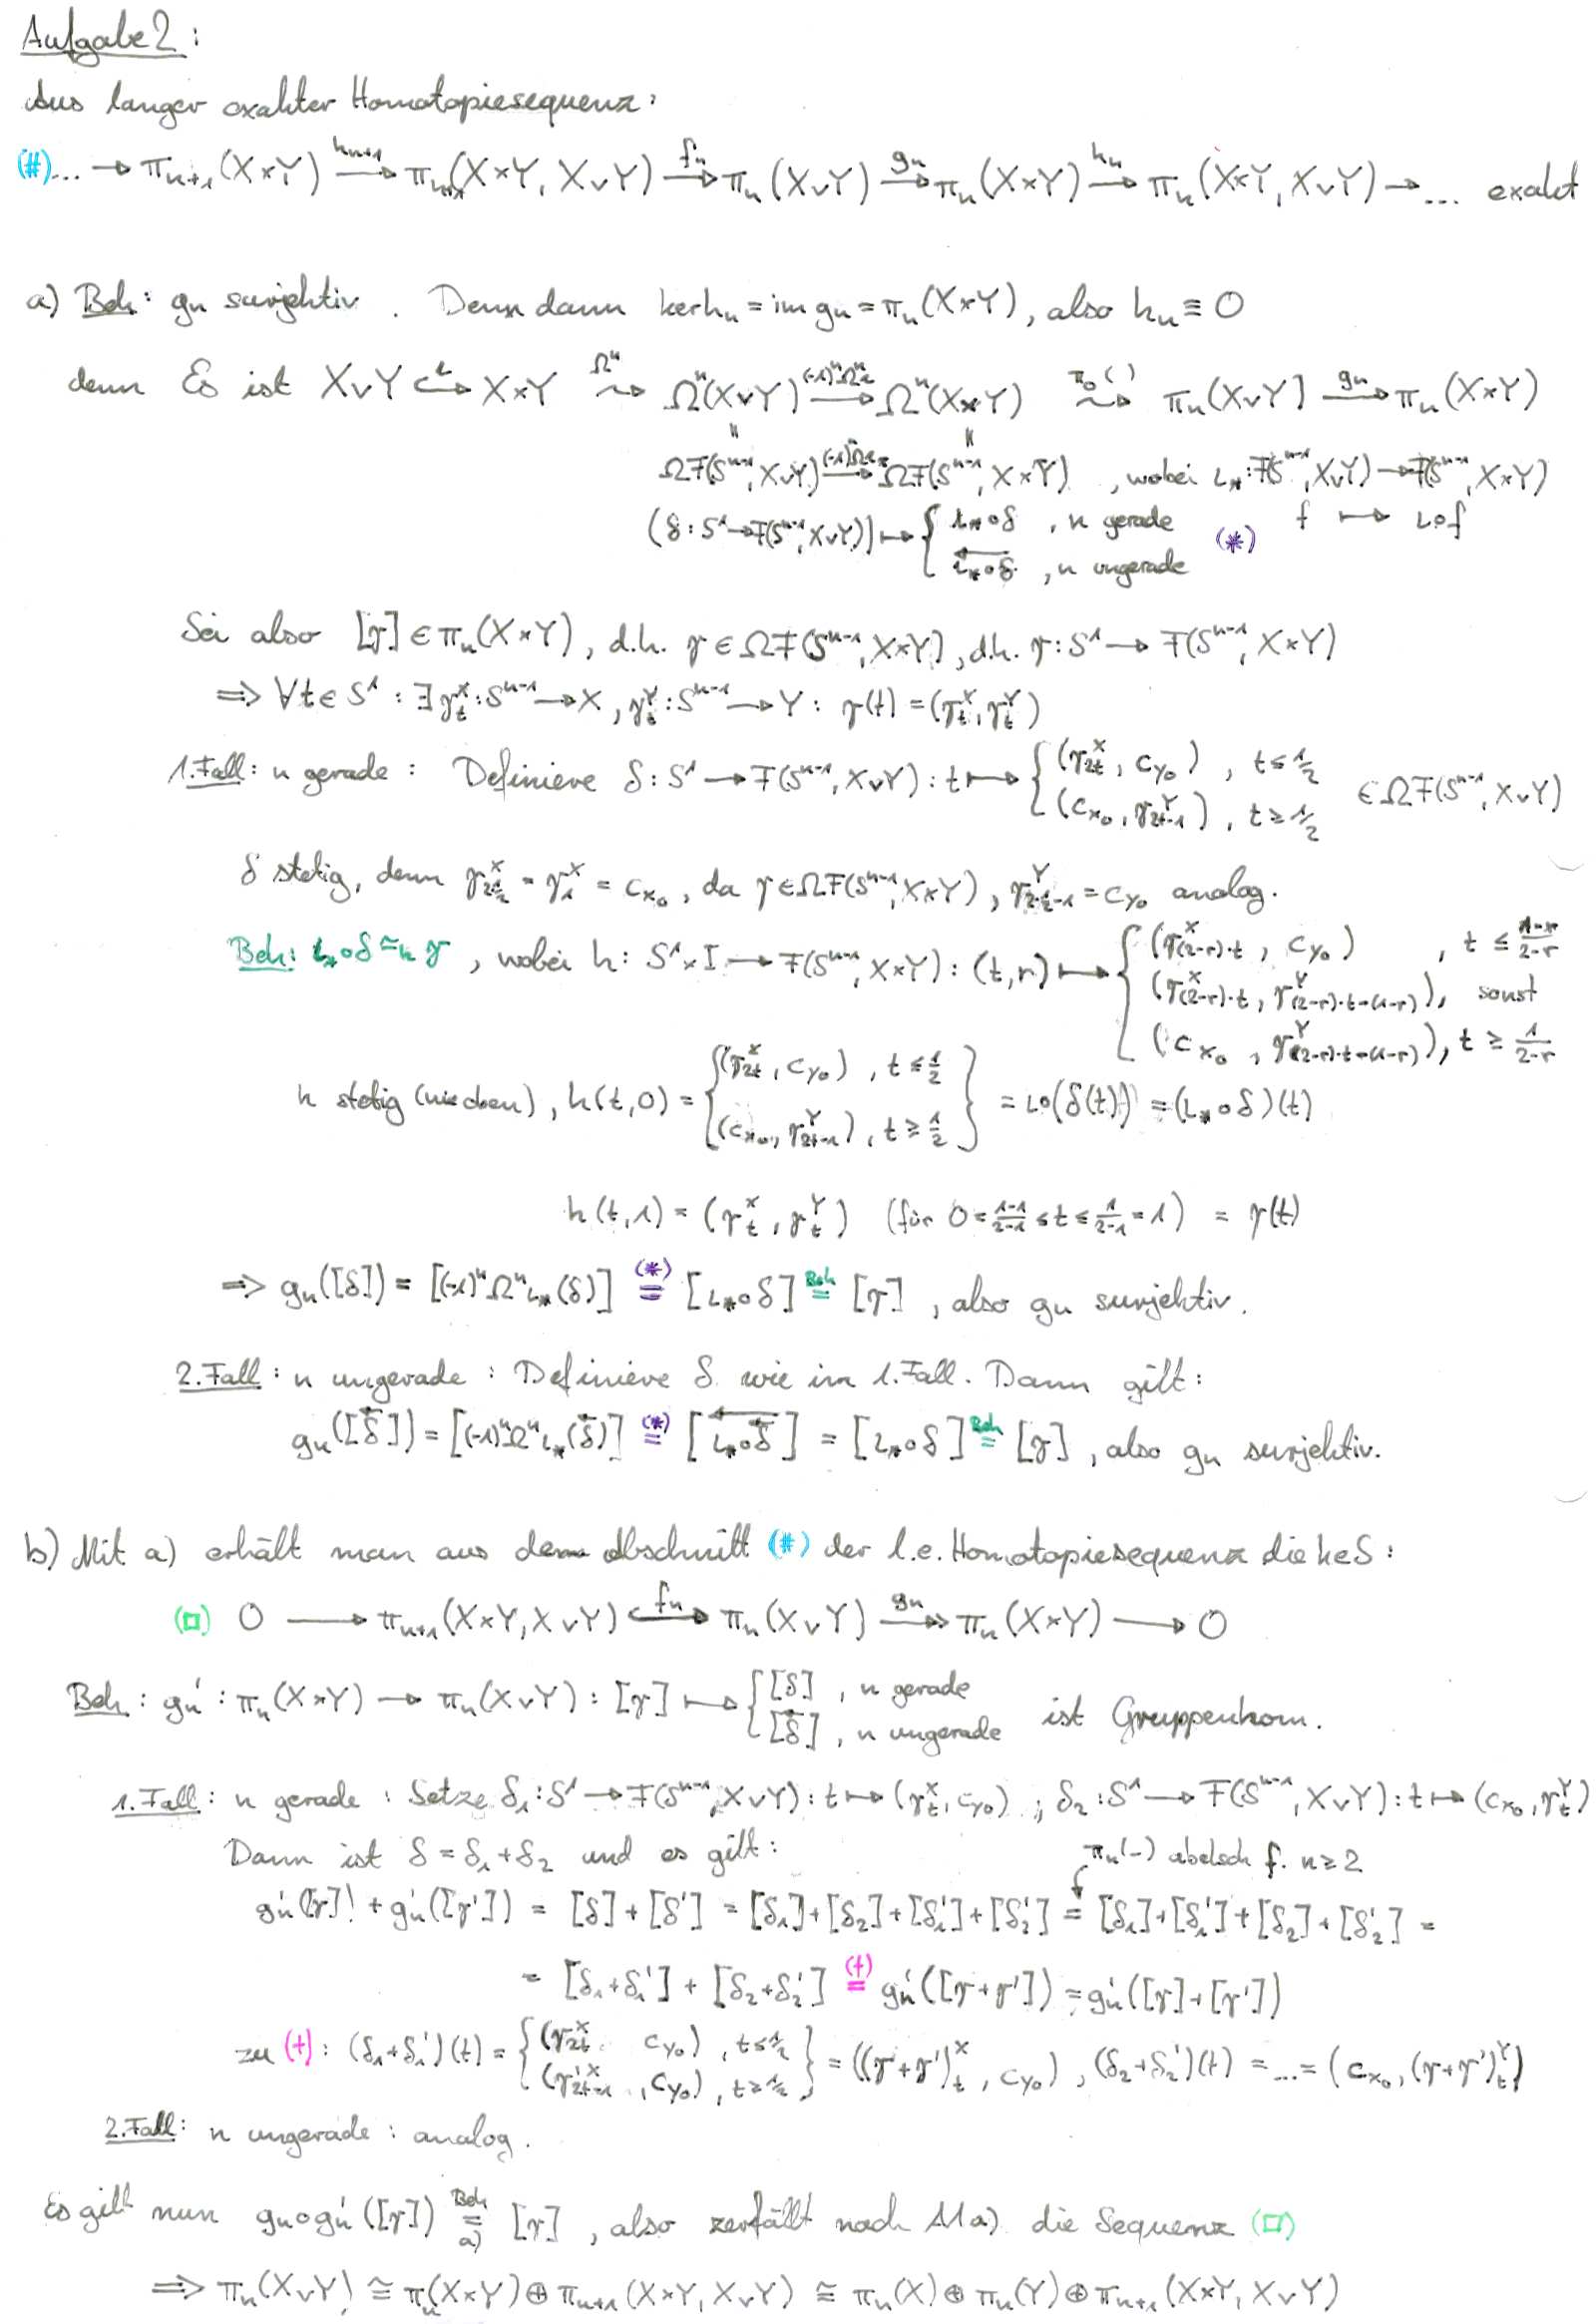 Aufgabe 2:
Aus langer exakter Homotopiesequenz:
(#) ... → π_{n+1}(X×Y) →^{h_{n+1}} π_{n+1}(X×Y, X∨Y) →^{f_n} π_n(X∨Y) →^{g_n} π_n(X×Y) →^{h_n} π_n(X×Y, X∨Y) → ... exakt
a) Beh: g_n surjektiv. Denn dann ker h_n = im g_n = π_n(X×Y), also h_n ≡ 0
denn Es ist X∨Y ↪^ι X×Y ⇝^{Ω^n} Ω^n(X∨Y) →^{(-1)^n Ω^n ι} Ω^n(X×Y) ⇝^{π_0( )} π_n(X∨Y) →^{g_n} π_n(X×Y)
= =
ΩF(S^{n-1}, X∨Y) →^{(-1)^n Ω ι_*} ΩF(S^{n-1}, X×Y), wobei ι_*: F(S^{n-1}, X∨Y) → F(S^{n-1}, X×Y)
(δ: S^1 → F(S^{n-1}, X∨Y)) ↦ { ι_*∘δ , n gerade (*) f ↦ ι∘f
\overleftarrow{ι_*∘δ} , n ungerade
Sei also [γ] ∈ π_n(X×Y), d.h. γ ∈ ΩF(S^{n-1}, X×Y), d.h. γ: S^1 → F(S^{n-1}, X×Y)
⇒ ∀t ∈ S^1: ∃ γ_t^X: S^{n-1} → X, γ_t^Y: S^{n-1} → Y: γ(t) = (γ_t^X, γ_t^Y)
1. Fall: n gerade: Definiere δ: S^1 → F(S^{n-1}, X∨Y): t ↦ { (γ_{2t}^X, c_{y_0}) , t ≤ 1/2
(c_{x_0}, γ_{2t-1}^Y) , t ≥ 1/2 ∈ ΩF(S^{n-1}, X∨Y)
δ stetig, denn γ_{2·1/2}^X = γ_1^X = c_{x_0}, da γ ∈ ΩF(S^{n-1}, X×Y), γ_{2·1/2-1}^Y = c_{y_0} analog.
Beh: ι_*∘δ ≃_h γ, wobei h: S^1×I → F(S^{n-1}, X×Y): (t,r) ↦ { (γ_{(2-r)·t}^X, c_{y_0}) , t ≤ (1-r)/(2-r)
(γ_{(2-r)·t}^X, γ_{(2-r)·t-(1-r)}^Y), sonst
(c_{x_0}, γ_{(2-r)·t-(1-r)}^Y), t ≥ 1/(2-r)
h stetig (wie oben), h(t,0) = { (γ_{2t}^X, c_{y_0}) , t ≤ 1/2
(c_{x_0}, γ_{2t-1}^Y) , t ≥ 1/2 } = ι∘(δ(t)) = (ι_*∘δ)(t)
h(t,1) = (γ_t^X, γ_t^Y) (für 0 = (1-1)/(2-1) ≤ t ≤ 1/(2-1) = 1) = γ(t)
⇒ g_n([δ]) = [(-1)^n Ω^n ι_*(δ)] =^{(*)} [ι_*∘δ] =^{Beh} [γ], also g_n surjektiv.
2. Fall: n ungerade: Definiere δ wie im 1. Fall. Dann gilt:
g_n([\overleftarrow{δ}]) = [(-1)^n Ω^n ι_*(\overleftarrow{δ})] =^{(*)} [\overleftarrow{ι_*∘\overleftarrow{δ}}] = [ι_*∘δ] =^{Beh} [γ], also g_n surjektiv.
b) Mit a) erhält man aus dem Abschnitt (#) der l.e. Homotopiesequenz die keS:
(□) 0 → π_{n+1}(X×Y, X∨Y) ↪^{f_n} π_n(X∨Y) ↠^{g_n} π_n(X×Y) → 0
Beh: g_n': π_n(X×Y) → π_n(X∨Y): [γ] ↦ { [δ] , n gerade
[\overleftarrow{δ}] , n ungerade ist Gruppenhom.
1. Fall: n gerade: Setze δ_1: S^1 → F(S^{n-1}, X∨Y): t ↦ (γ_t^X, c_{y_0}) ; δ_2: S^1 → F(S^{n-1}, X∨Y): t ↦ (c_{x_0}, γ_t^Y)
Dann ist δ = δ_1 + δ_2 und es gilt: π_n(-) abelsch f. n ≥ 2
g_n'([γ]) + g_n'([γ']) = [δ] + [δ'] = [δ_1] + [δ_2] + [δ_1'] + [δ_2'] = [δ_1] + [δ_1'] + [δ_2] + [δ_2'] =
= [δ_1+δ_1'] + [δ_2+δ_2'] =^{(+)} g_n'([γ+γ']) = g_n'([γ]+[γ'])
zu (+): (δ_1+δ_1')(t) = { (γ_{2t}^X, c_{y_0}) , t ≤ 1/2
(γ'^X_{2t-1}, c_{y_0}), t ≥ 1/2 } = ((γ+γ')_t^X, c_{y_0}), (δ_2+δ_2')(t) = ... = (c_{x_0}, (γ+γ')_t^Y)
2. Fall: n ungerade: analog.
Es gilt nun g_n∘g_n'([γ]) =^{Beh}_{a)} [γ], also zerfällt nach A1a) die Sequenz (□)
⇒ π_n(X∨Y) ≅ π_n(X×Y) ⊕ π_{n+1}(X×Y, X∨Y) ≅ π_n(X) ⊕ π_n(Y) ⊕ π_{n+1}(X×Y, X∨Y)